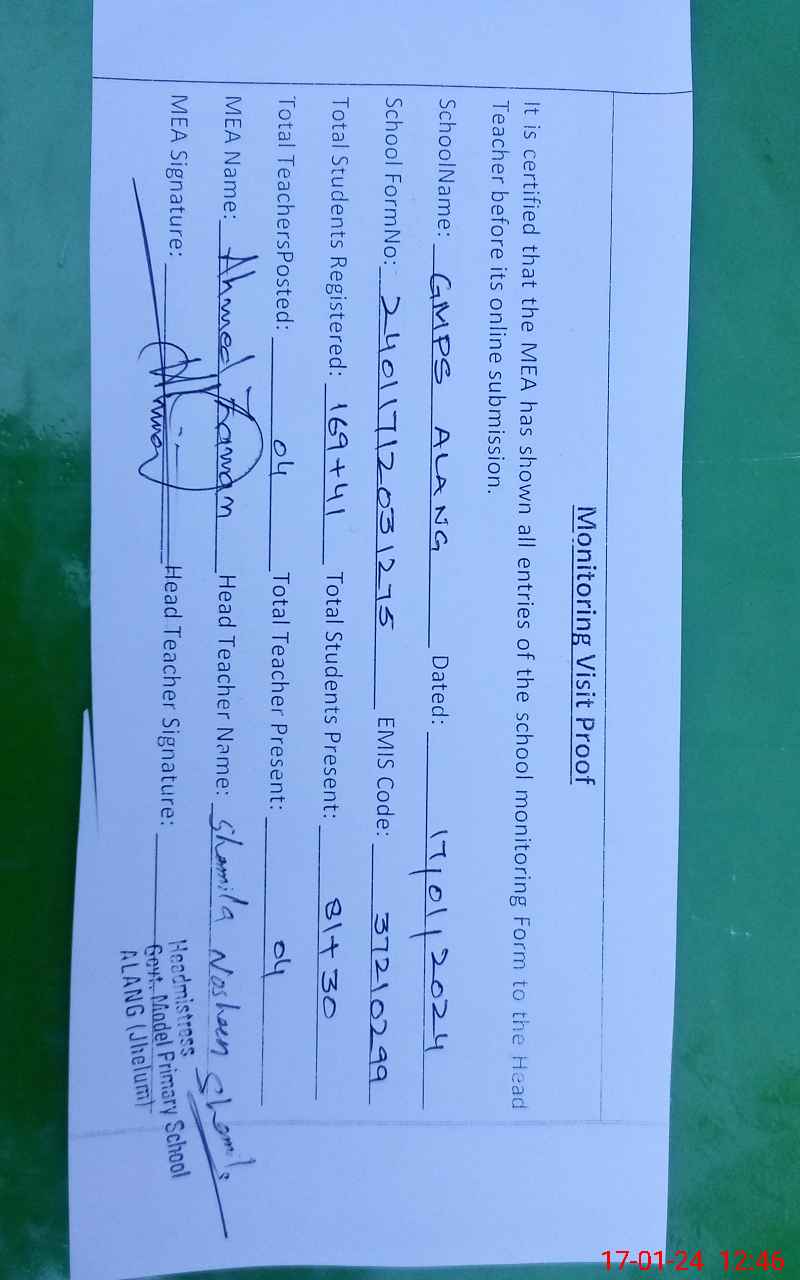 Monitoring Visit Proof
It is certified that the MEA has shown all entries of the school monitoring Form to the Head
Teacher before its online submission.
SchoolName: GMPS ALANG Dated: 17/01/2024
School FormNo: 240117120031275 EMIS Code: 37210299
Total Students Registered: 169+41 Total Students Present: 81+30
Total TeachersPosted: 04 Total Teacher Present: 04
MEA Name: Ahmed Zaman Head Teacher Name: Shamila Nosheen
MEA Signature: Head Teacher Signature:
Headmistress
Govt. Model Primary School
ALANG (Jhelum)
17-01-24 12:46